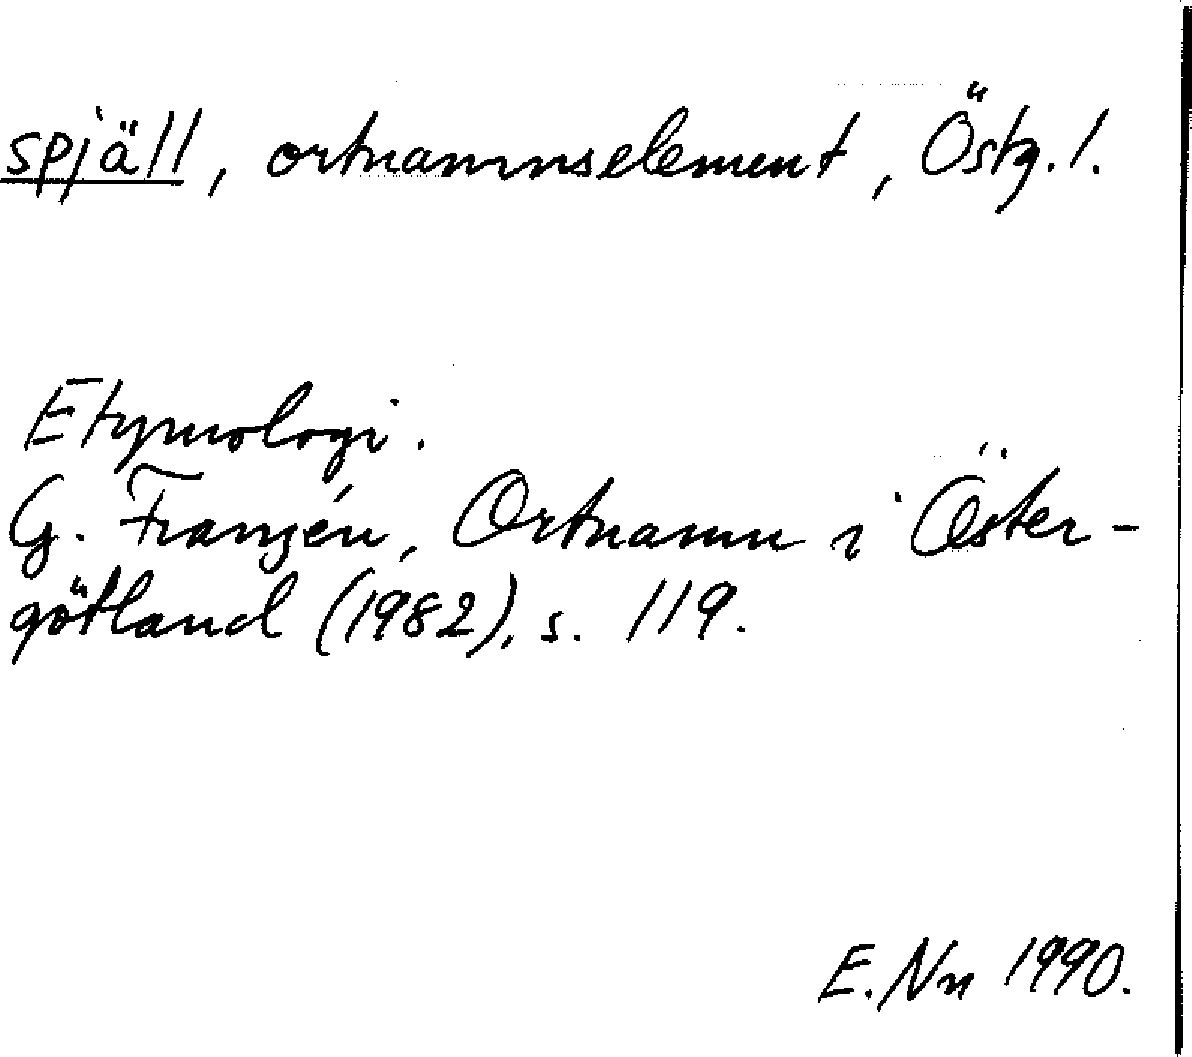 spjäll, ortnamnselement, Östg. l.
Etymologi.
G. Franzén, Ortnamn i Öster-
götland (1982), s. 119.
E. Nn 1990.